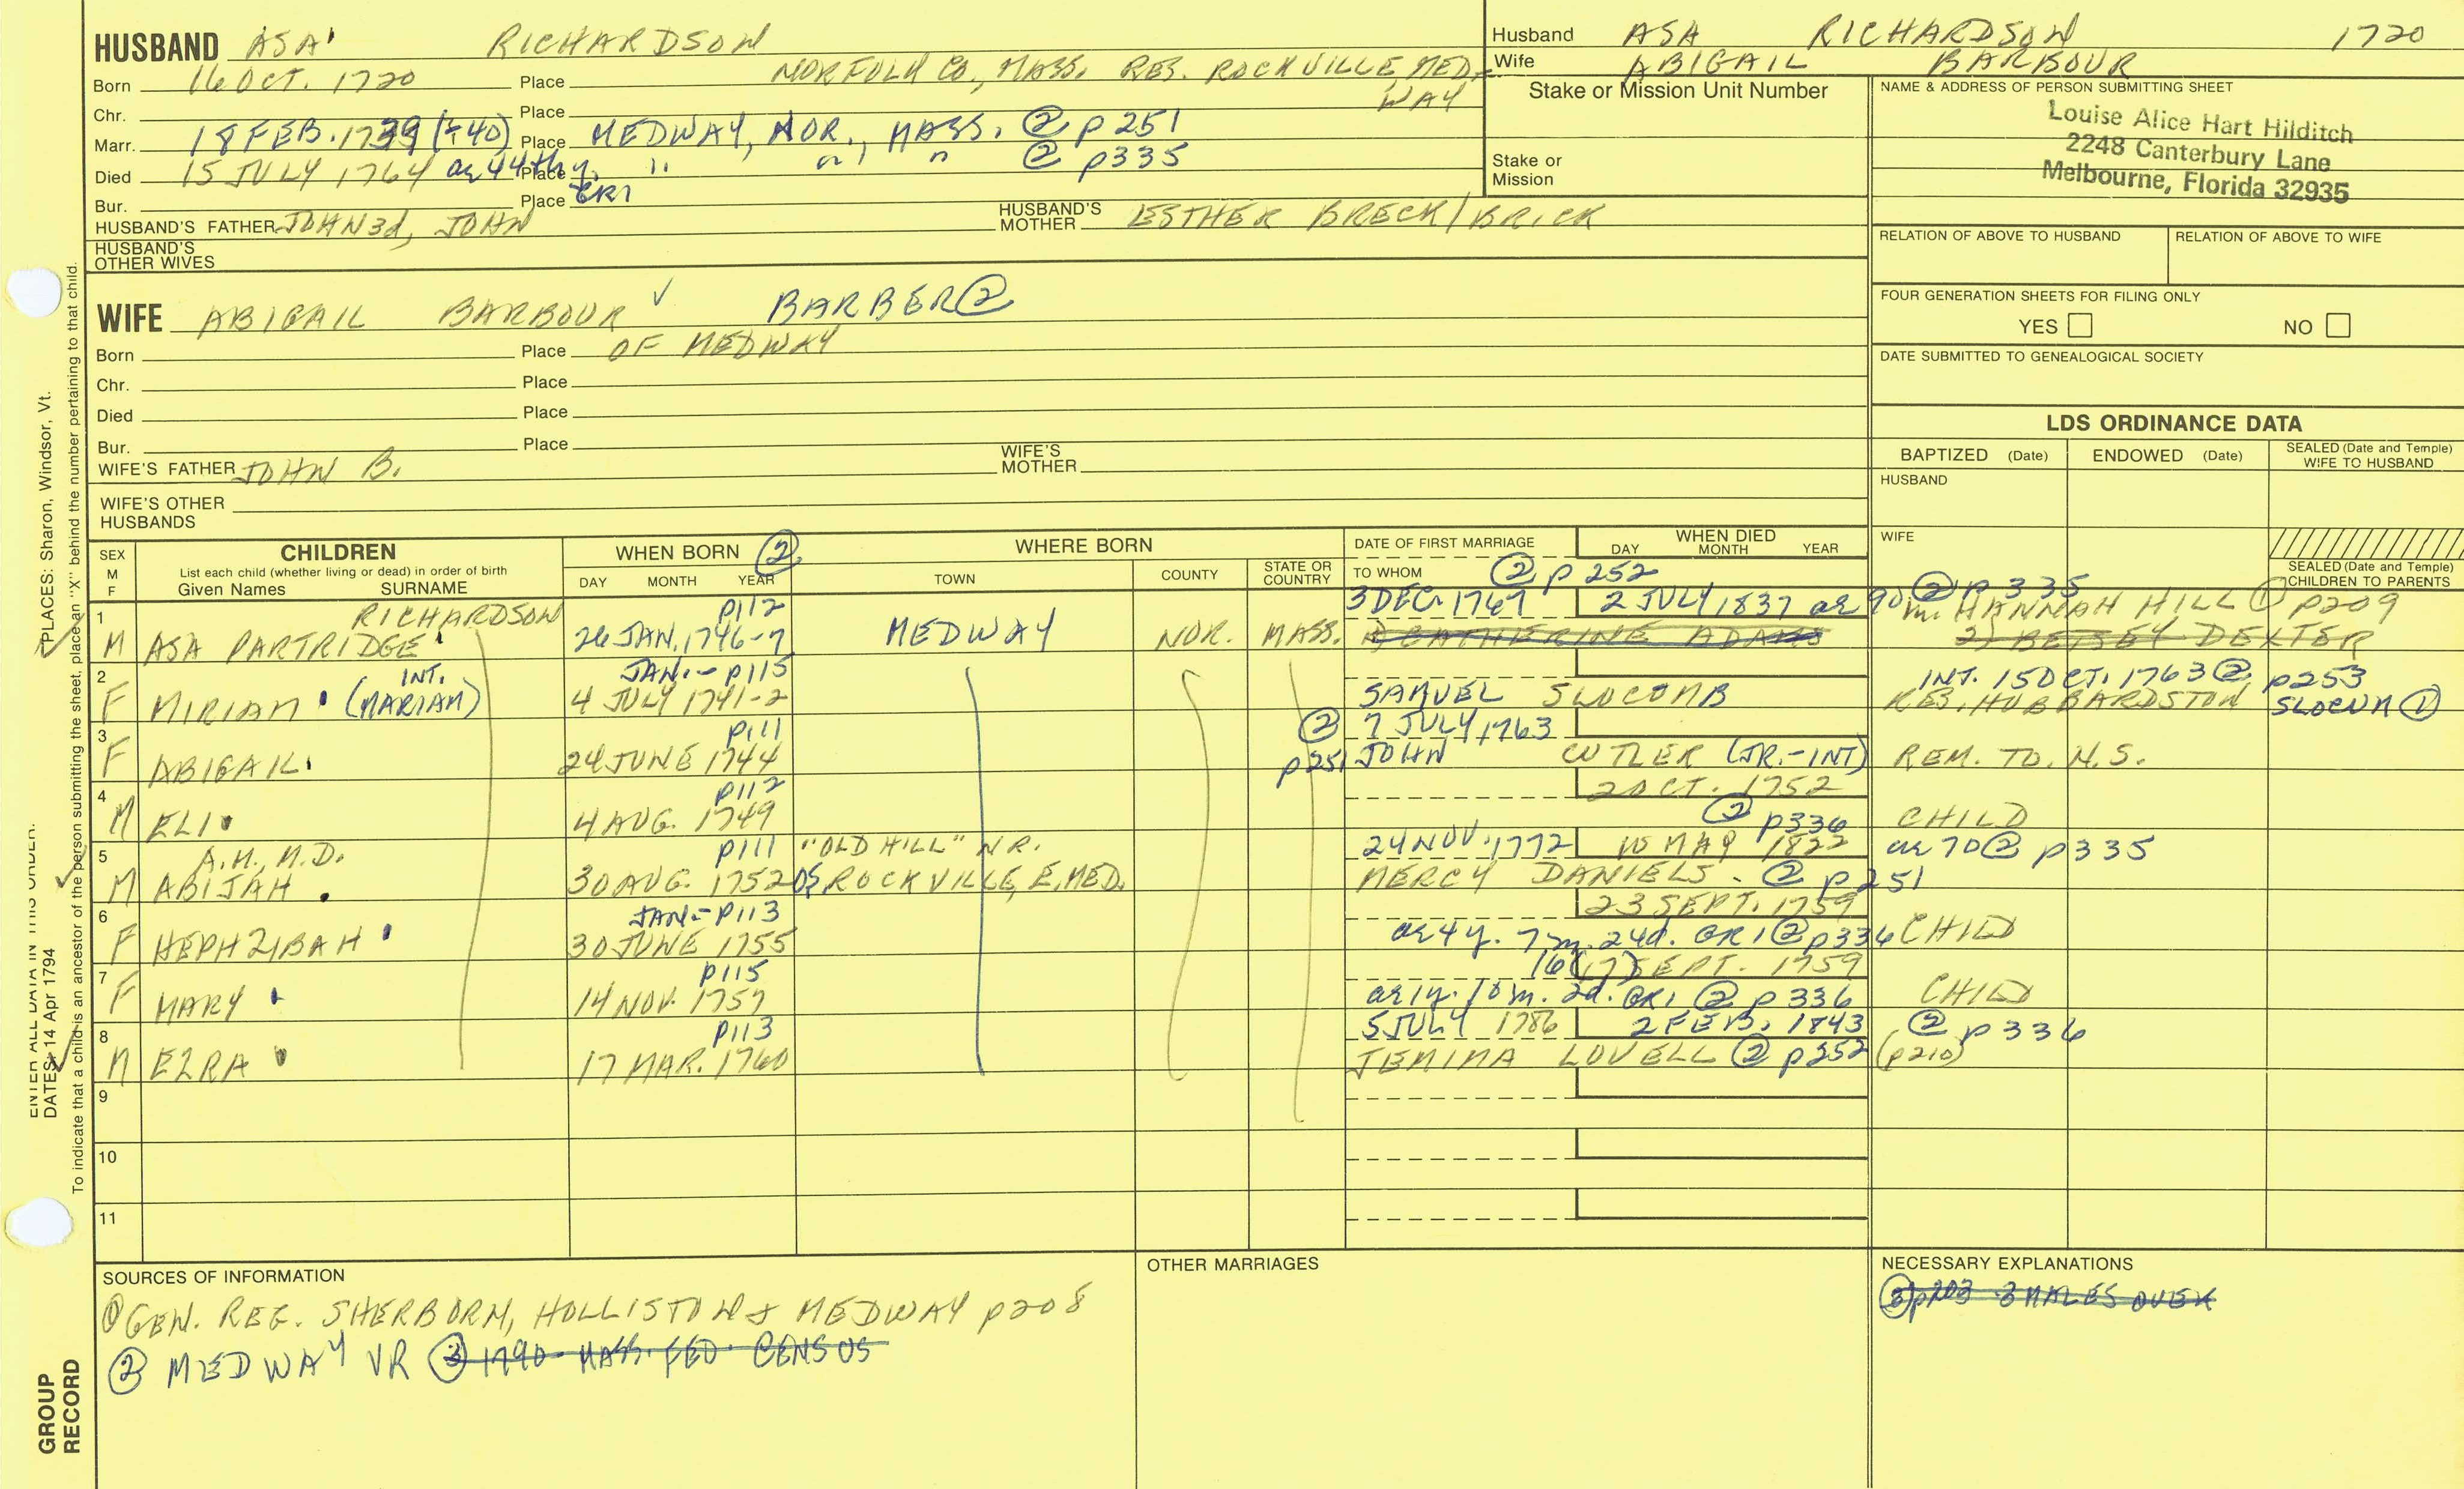 HUSBAND ASA RICHARDSON
Born 16 OCT. 1720 Place NORFOLK CO., MASS. RES. ROCKVILLE MED-
WAY
Chr. Place
Marr. 18 FEB. 1739 (-40) Place MEDWAY, NOR., MASS. ② p 251
Died 15 JULY 1764 ae 44th y. Place " " " ② p335
Bur. Place GR1
HUSBAND'S FATHER JOHN 3d, JOHN HUSBAND'S MOTHER ESTHER BRECK/BRICK
HUSBAND'S OTHER WIVES
Husband ASA RICHARDSON 1720
Wife ABIGAIL BARBOUR
Stake or Mission Unit Number
Stake or Mission
NAME & ADDRESS OF PERSON SUBMITTING SHEET
Louise Alice Hart Hilditch
2248 Canterbury Lane
Melbourne, Florida 32935
RELATION OF ABOVE TO HUSBAND RELATION OF ABOVE TO WIFE
FOUR GENERATION SHEETS FOR FILING ONLY
YES NO
DATE SUBMITTED TO GENEALOGICAL SOCIETY
WIFE ABIGAIL BARBOUR ✓ BARBER ②
Born Place OF MEDWAY
Chr. Place
Died Place
Bur. Place
WIFE'S FATHER JOHN B. WIFE'S MOTHER
WIFE'S OTHER HUSBANDS
LDS ORDINANCE DATA
BAPTIZED (Date) ENDOWED (Date) SEALED (Date and Temple) WIFE TO HUSBAND
HUSBAND
WIFE
SEALED (Date and Temple) CHILDREN TO PARENTS
SEX M F
CHILDREN
List each child (whether living or dead) in order of birth
Given Names SURNAME
WHEN BORN ②
DAY MONTH YEAR
WHERE BORN
TOWN COUNTY STATE OR COUNTRY
DATE OF FIRST MARRIAGE
TO WHOM ② p 252
WHEN DIED
DAY MONTH YEAR
1 RICHARDSON p112 3 DEC. 1767 2 JULY 1837 ae 90 ② p 335
M ASA PARTRIDGE 26 JAN. 1746-7 MEDWAY NOR. MASS. 1) CATHERINE ADAMS m. HANNAH HILL ① p209
2) BETSEY DEXTER
2 INT. JAN.- p115 INT. 15 OCT. 1763 ② p253
F MIRIAM (MARIAM) 4 JULY 1741-2 SAMUEL SLOCOMB RES. HUBBARDSTON SLOCUM ①
3 p111 ② 7 JULY 1763
F ABIGAIL 24 JUNE 1744 p251 JOHN CUTLER (JR.-INT) REM. TO N.S.
4 p112 2 OCT. 1752
M ELI 4 AUG. 1749 ② p336 CHILD
5 A.M., M.D. p111 "OLD HILL" NR. 24 NOV. 1772 10 MAY 1822 ae 70 ② p335
M ABIJAH 30 AUG. 1752 OS ROCKVILLE, E. MED. MERCY DANIELS - ② p251
6 JAN- p113 23 SEPT. 1759
F HEPHZIBAH 30 JUNE 1755 ae 4y. 7m. 24d. GR1 ② p336 CHILD
7 p115 16 (17) SEPT. 1759
F MARY 14 NOV. 1757 ae 1y. 10m. 2d. GR1 ② p 336 CHILD
8 p113 5 JULY 1786 2 FEB. 1843 ② p 336
M EZRA 17 MAR. 1760 JEMIMA LOVELL ② p252 (p210)
9
10
11
SOURCES OF INFORMATION
① GEN. REG. SHERBORN, HOLLISTON & MEDWAY p208
② MEDWAY VR ③ 1790 MASS. FED. CENSUS
OTHER MARRIAGES
NECESSARY EXPLANATIONS
③ p203 3 MALES OVER
PLACES: Sharon, Windsor, Vt.
ENTER ALL DATA IN THIS ORDER:
DATES: 14 Apr 1794
To indicate that a child is an ancestor of the person submitting the sheet, place an "X" behind the number pertaining to that child.
GROUP RECORD